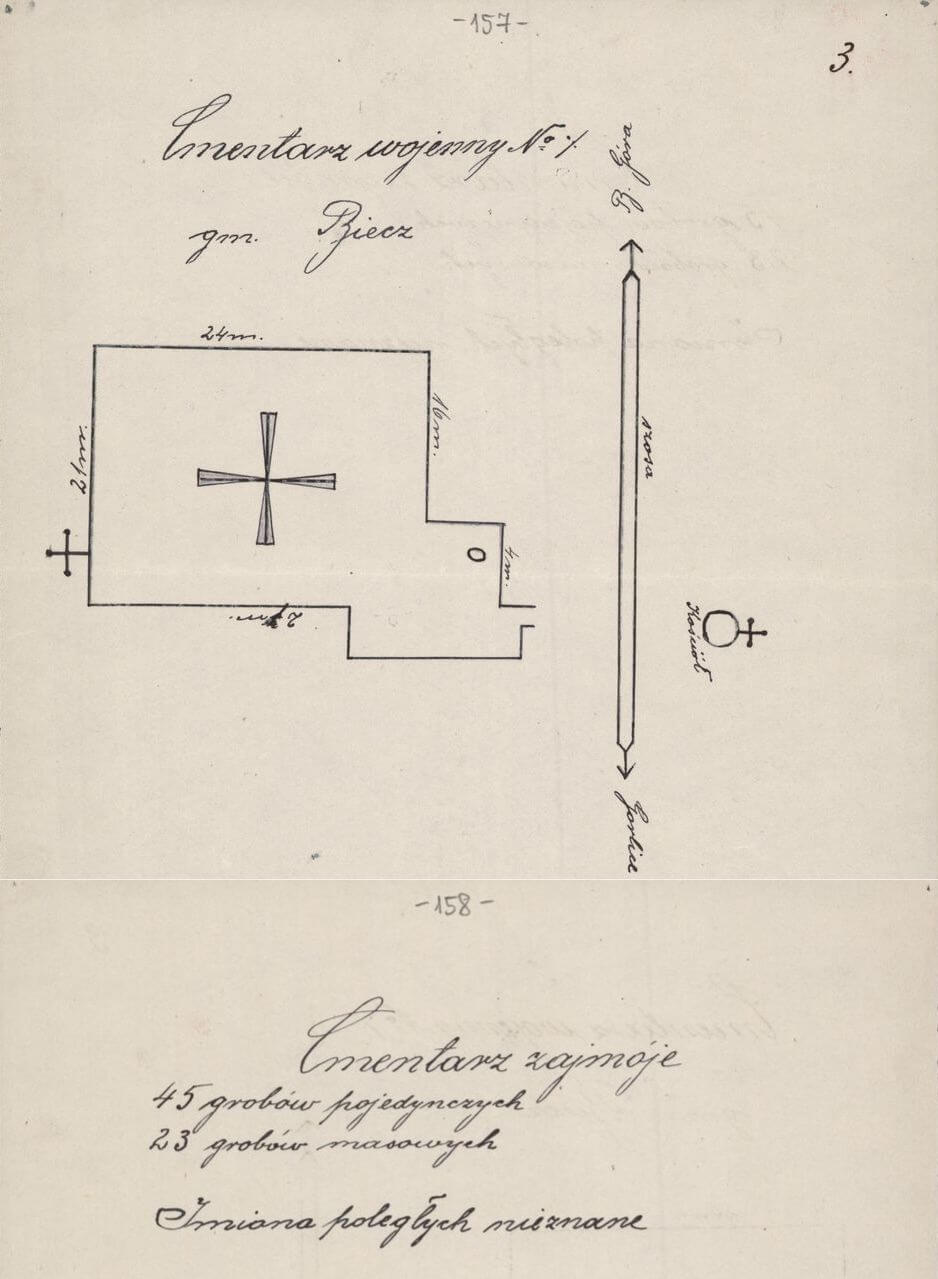 -157-
3.
Cmentarz wojenny No
gm. Biecz
B. Góra
24m.
16m.
21m.
szosa
4m.
Kościół
Gorlice
-158-
Cmentarz zajmóje
45 grobów pojedynczych
23 grobów masowych
Imiona poległych nieznane